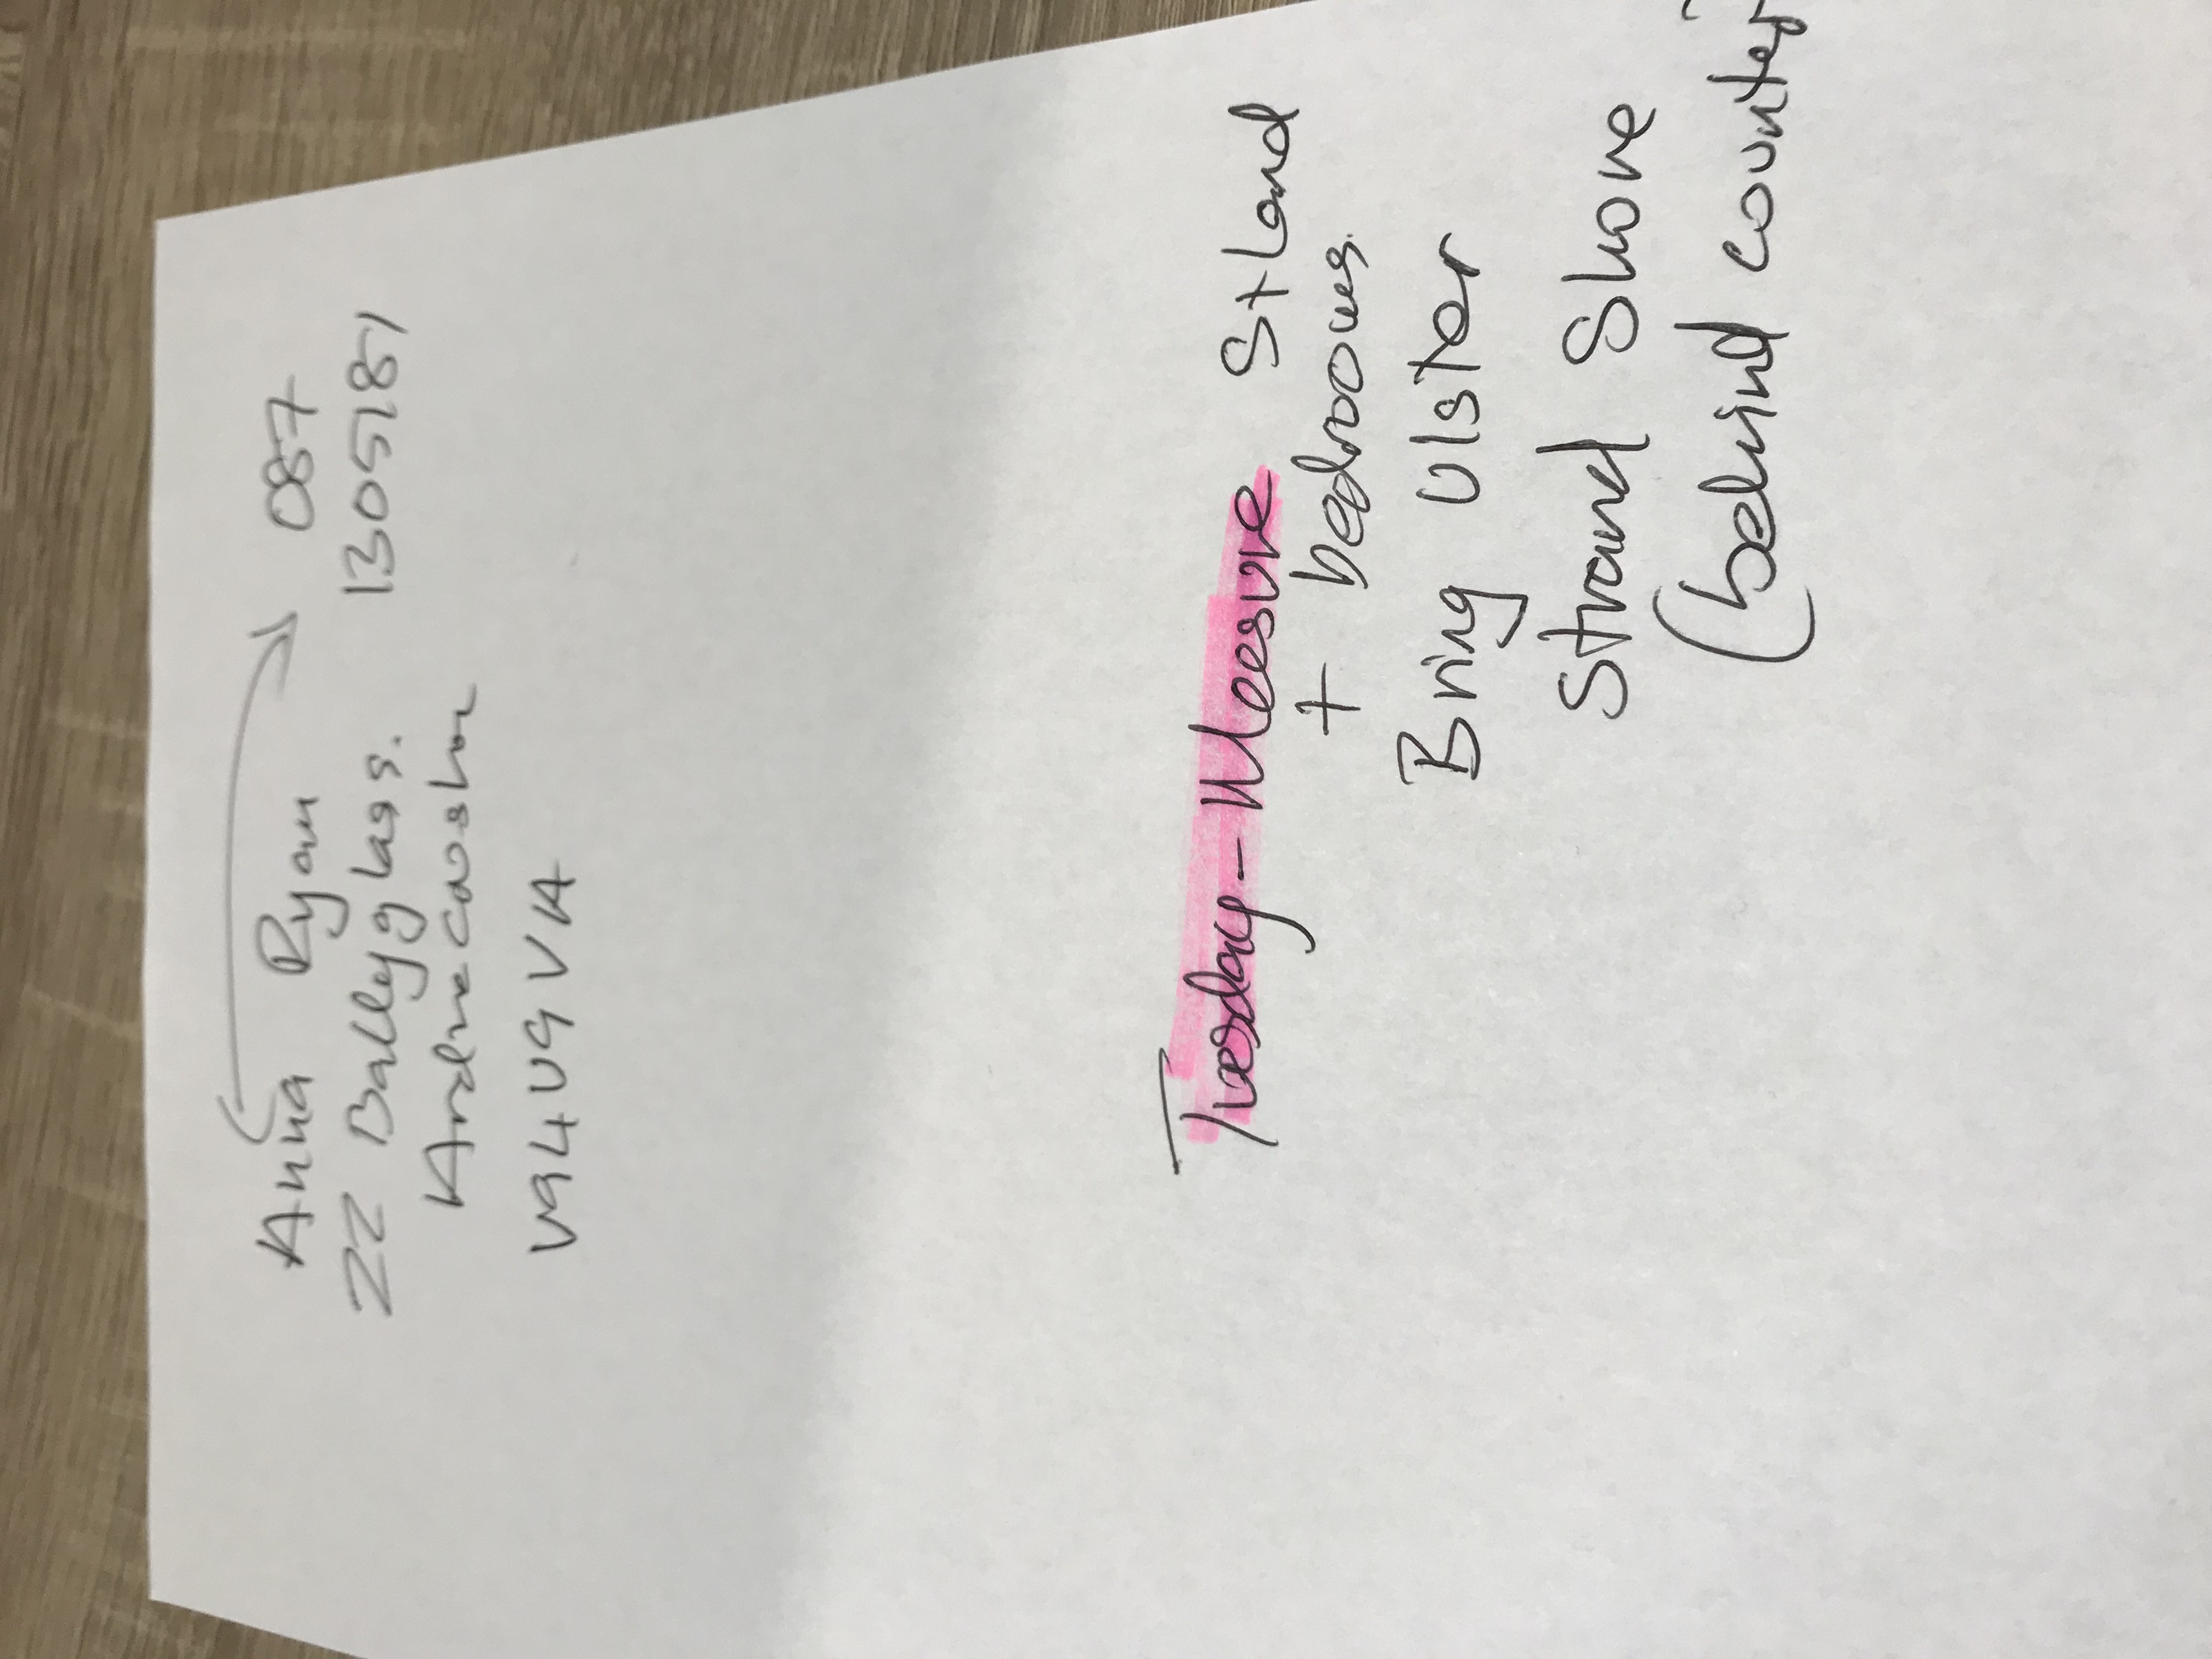 Anna Ryan → 087
1305181
22 Ballyglass.
Ardnacrusha
V94U9VA
Tuesday - Measure St Land
+ bedrooms.
Bring Ulster
Strand Shore
(behind counter)